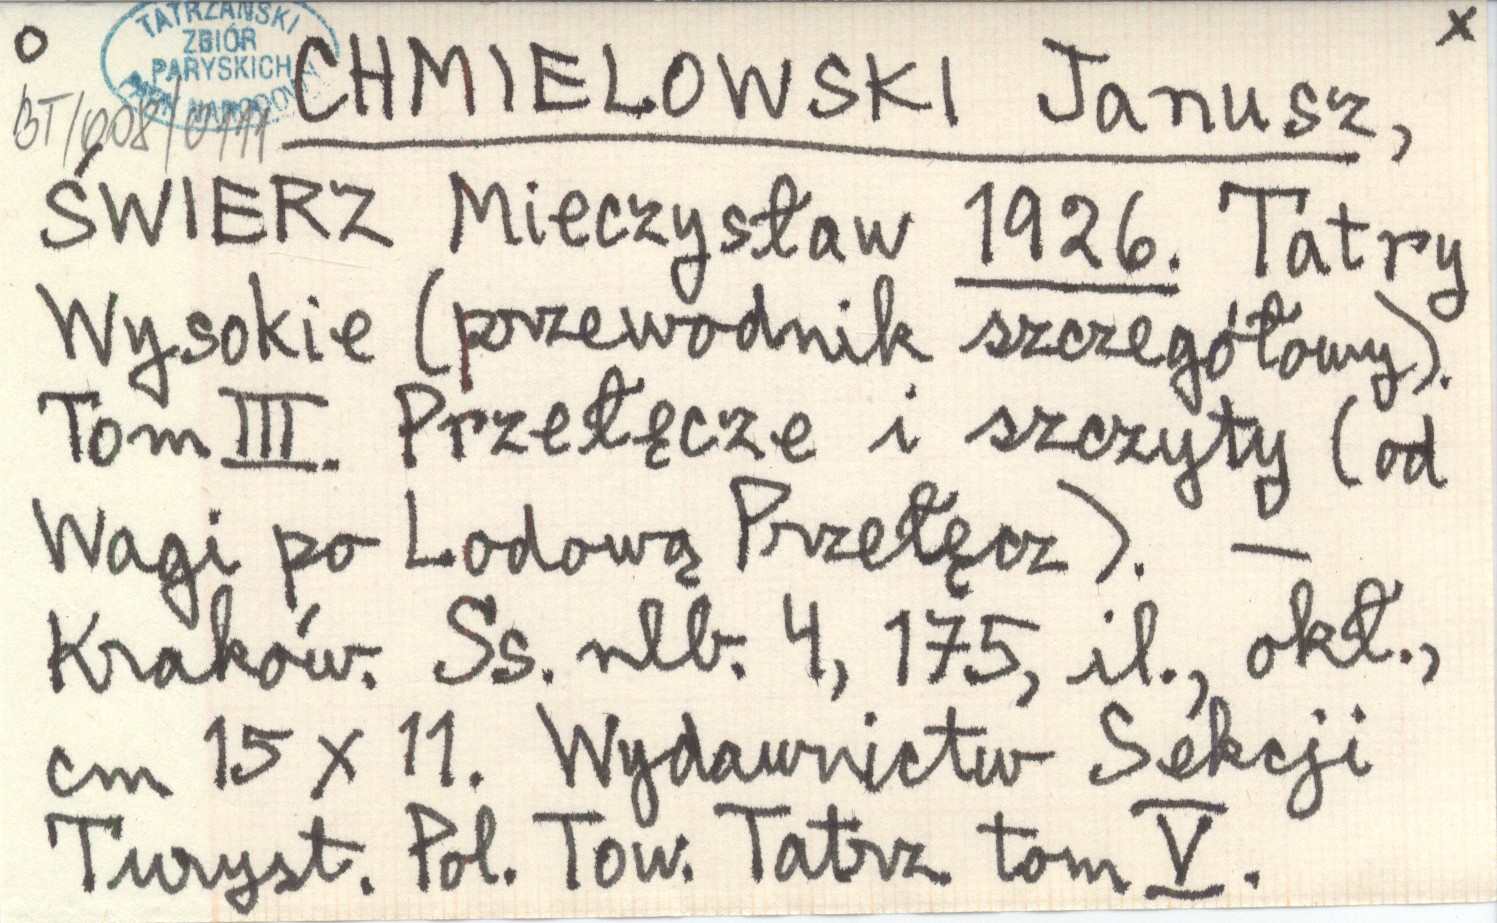 o
x
TATRZAŃSKI
ZBIÓR
PARYSKICH
PARK NARODOWY
CHMIELOWSKI Janusz,
ŚWIERZ Mieczysław 1926. Tatry
Wysokie (przewodnik szczegółowy).
Tom III. Przełęcze i szczyty (od
Wagi po Lodową Przełęcz). —
Kraków. Ss. nlb. 4, 175, il., okł.,
cm 15 x 11. Wydawnictw Sekcji
Turyst. Pol. Tow. Tatrz tom V.